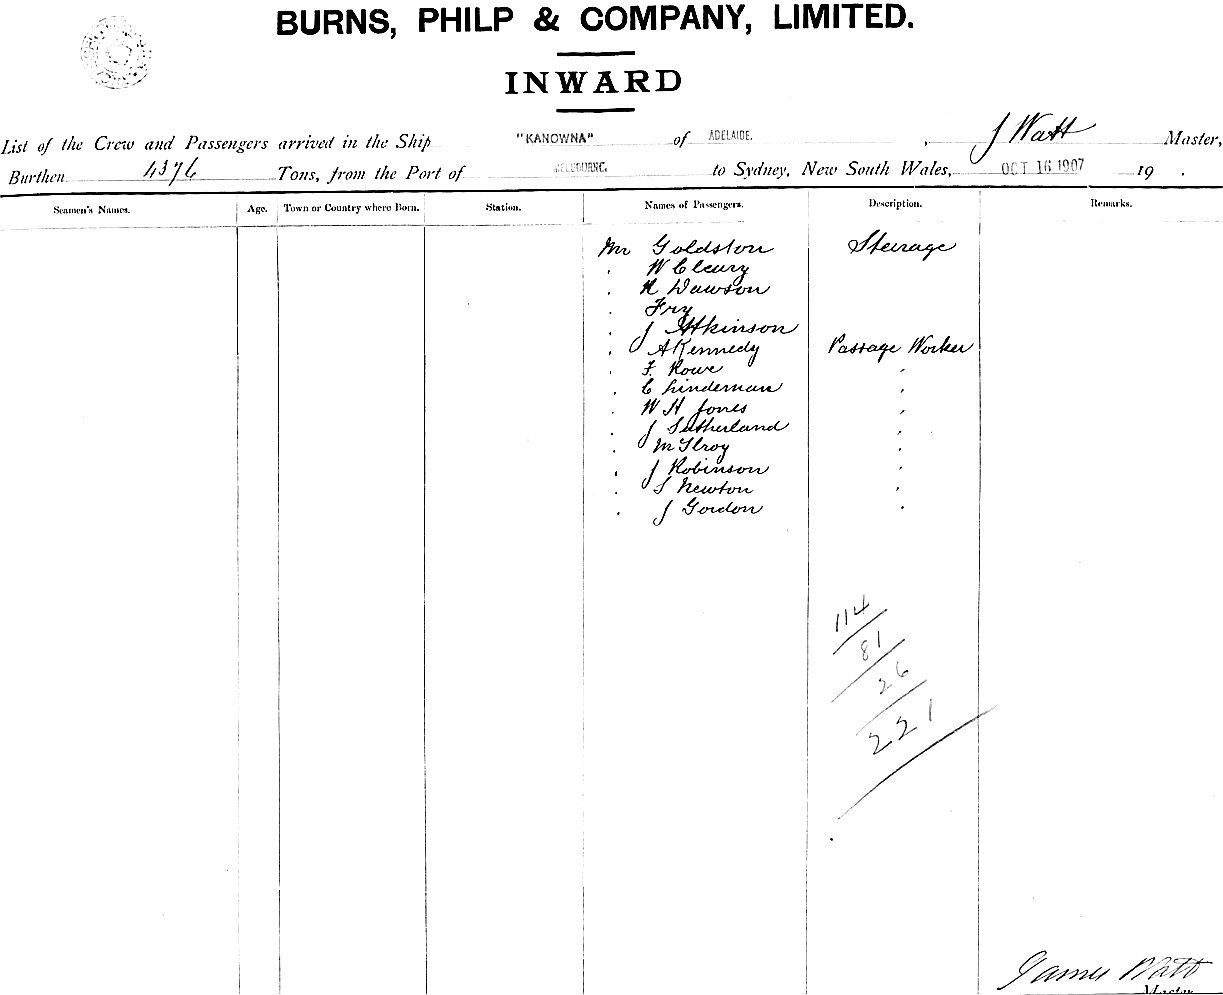 BURNS, PHILP & COMPANY, LIMITED.
INWARD
List of the Crew and Passengers arrived in the Ship "KANOWNA" of ADELAIDE. , J Watt Master,
Burthen 4376 Tons, from the Port of MELBOURNE. to Sydney, New South Wales, OCT 16 1907 19 .
Seamen's Names. Age. Town or Country where Born. Station. Names of Passengers. Description. Remarks.
Mr Goldston Steerage
. W Cleary
. R Dawson
. Fry
. J Atkinson
. A Kennedy Passage Worker
. F. Rowe "
. C Lindeman "
. W H Jones "
. J Sutherland "
. McIlroy "
. J Robinson "
. S Newton "
. J Gordon "
114
81
26
221
James Watt
Master